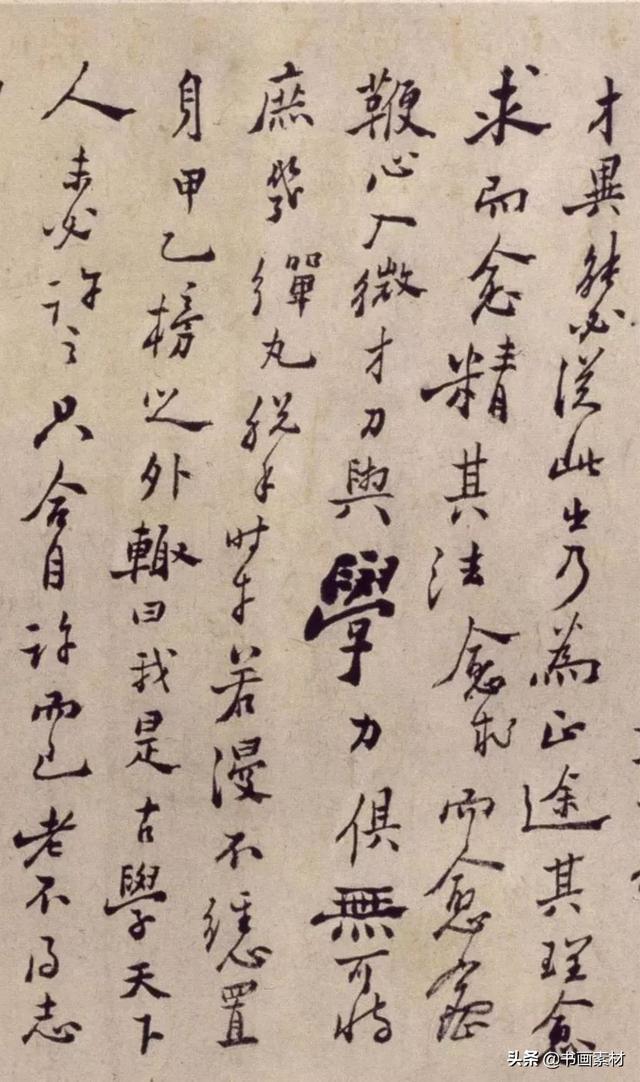 才異能必從此出乃為正途其理愈
求而愈精其法愈求而愈密
鞭心入微才力與學力俱無可恃
庶幾彈丸脫手時乎若漫不經心置
身甲乙榜之外輙曰我是古學天下
人未必許之只合自許而已老不得志
头条 @书画素材